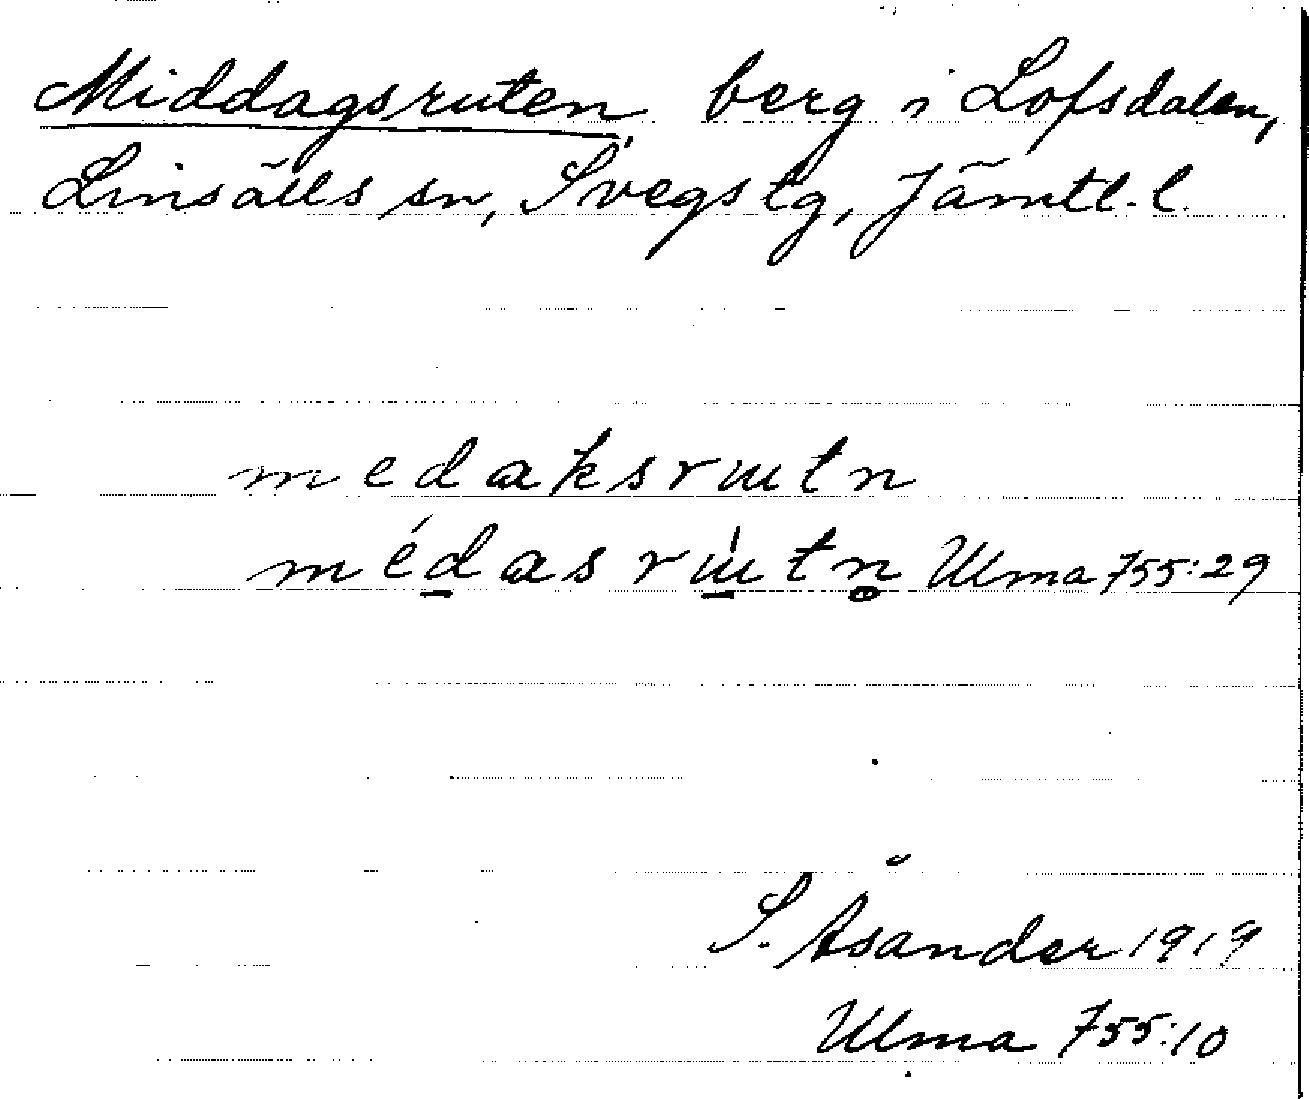 Middagsruten, berg i Lofsdalen,
Linsälls sn, Svegs tg, Jämtl. l.
medaksrɯtn
médasrɯ́tn̥ Ulma 755:29
S. Åsander 1919
Ulma 755:10